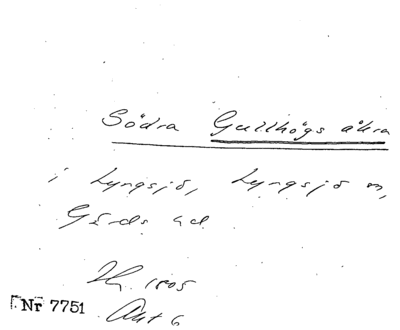 Södra Gullhögs åkra
i Lyngsjö, Lyngsjö sn,
Gärds hd
Lh. 1805
Nr 7751
Akt 6